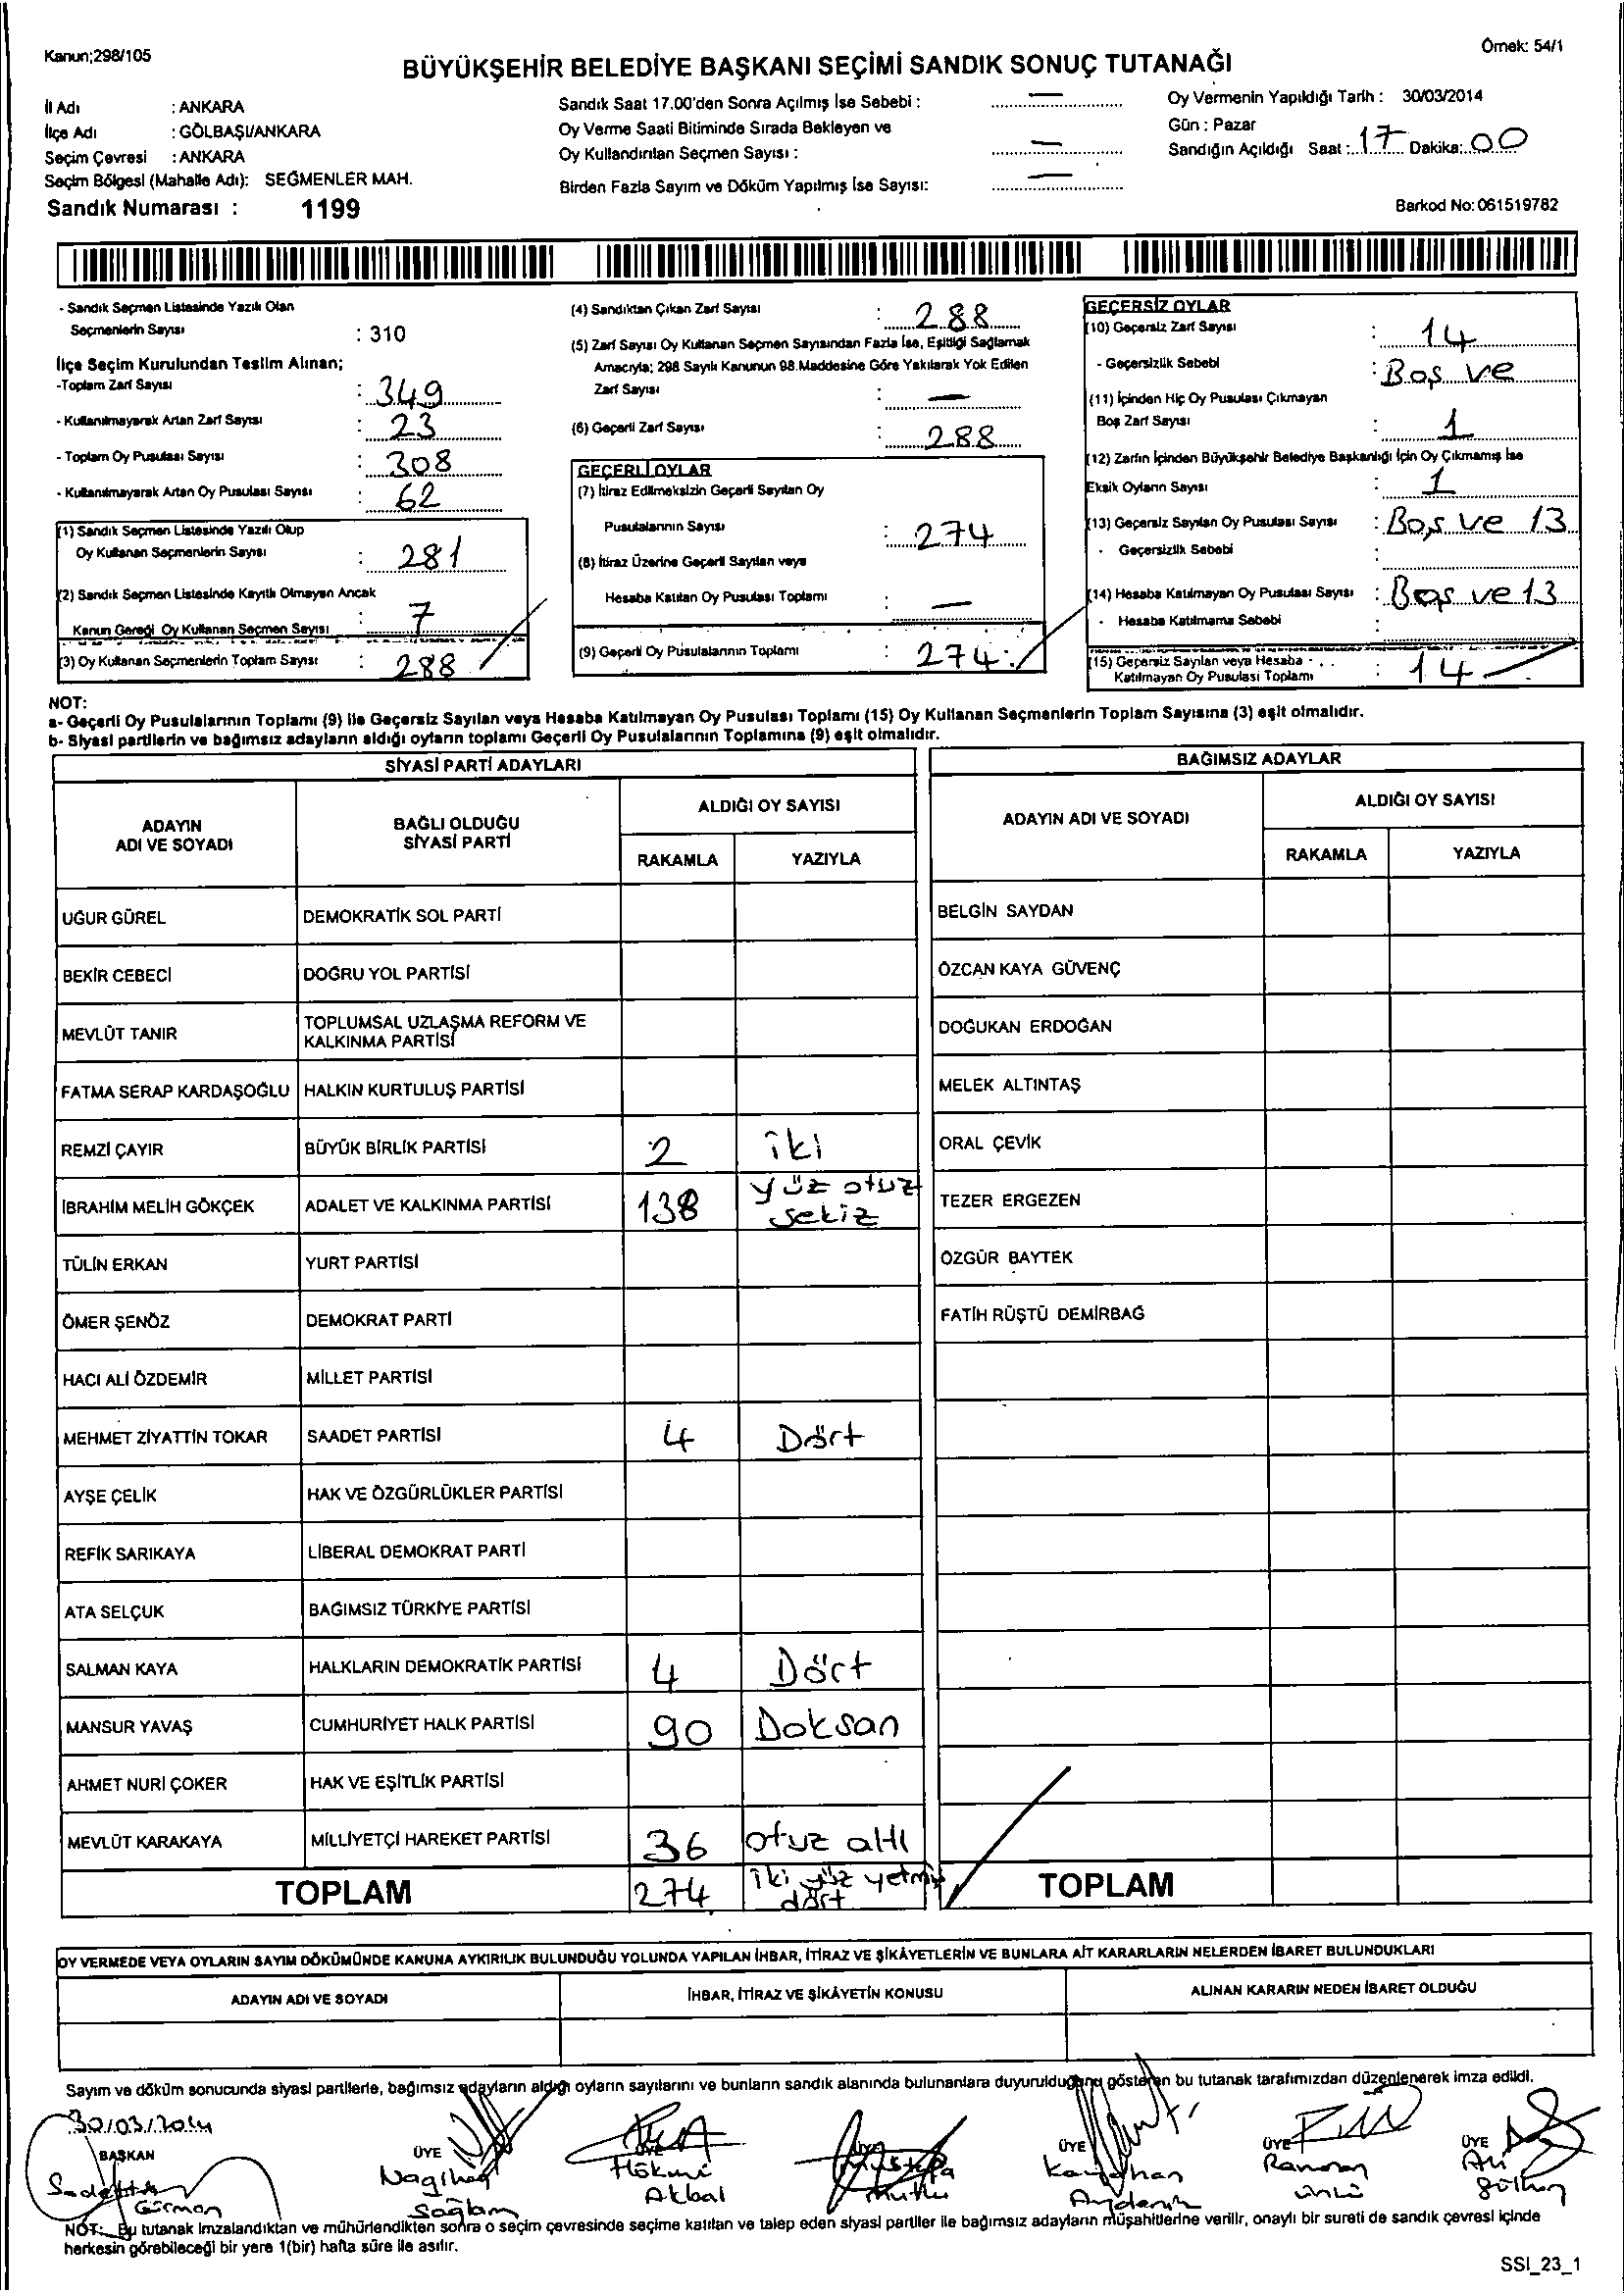 Kanun;298/105
Örnek: 54/1
BÜYÜKŞEHİR BELEDİYE BAŞKANI SEÇİMİ SANDIK SONUÇ TUTANAĞI
İl Adı : ANKARA
İlçe Adı : GÖLBAŞI/ANKARA
Seçim Çevresi : ANKARA
Seçim Bölgesi (Mahalle Adı): SEĞMENLER MAH.
Sandık Numarası : 1199
Sandık Saat 17.00'den Sonra Açılmış İse Sebebi : —
Oy Verme Saati Bitiminde Sırada Bekleyen ve
Oy Kullandırılan Seçmen Sayısı : —
Birden Fazla Sayım ve Döküm Yapılmış İse Sayısı: —
Oy Vermenin Yapıldığı Tarih : 30/03/2014
Gün : Pazar
Sandığın Açıldığı Saat : 17 Dakika: 00
Barkod No: 061519782
- Sandık Seçmen Listesinde Yazılı Olan
Seçmenlerin Sayısı : 310
İlçe Seçim Kurulundan Teslim Alınan;
-Toplam Zarf Sayısı : 349
- Kullanılmayarak Artan Zarf Sayısı : 23
- Toplam Oy Pusulası Sayısı : 308
- Kullanılmayarak Artan Oy Pusulası Sayısı : 62
(1) Sandık Seçmen Listesinde Yazılı Olup
Oy Kullanan Seçmenlerin Sayısı : 281
(2) Sandık Seçmen Listesinde Kayıtlı Olmayan Ancak
Kanun Gereği Oy Kullanan Seçmen Sayısı : 7
(3) Oy Kullanan Seçmenlerin Toplam Sayısı : 288
(4) Sandıktan Çıkan Zarf Sayısı : 288
(5) Zarf Sayısı Oy Kullanan Seçmen Sayısından Fazla İse, Eşitliği Sağlamak
Amacıyla; 298 Sayılı Kanunun 98.Maddesine Göre Yakılarak Yok Edilen
Zarf Sayısı : —
(6) Geçerli Zarf Sayısı : 288
GEÇERLİ OYLAR
(7) İtiraz Edilmeksizin Geçerli Sayılan Oy
Pusulalarının Sayısı : 274
(8) İtiraz Üzerine Geçerli Sayılan veya
Hesaba Katılan Oy Pusulası Toplamı : —
(9) Geçerli Oy Pusulalarının Toplamı : 274
GEÇERSİZ OYLAR
(10) Geçersiz Zarf Sayısı : 14
- Geçersizlik Sebebi : Boş ve
(11) İçinden Hiç Oy Pusulası Çıkmayan
Boş Zarf Sayısı : 1
(12) Zarfın İçinden Büyükşehir Belediye Başkanlığı İçin Oy Çıkmamış İse
Eksik Oyların Sayısı : 1
(13) Geçersiz Sayılan Oy Pusulası Sayısı : Boş ve 13
- Geçersizlik Sebebi :
(14) Hesaba Katılmayan Oy Pusulası Sayısı : Boş ve 13
- Hesaba Katılmama Sebebi :
(15) Geçersiz Sayılan veya Hesaba
Katılmayan Oy Pusulası Toplamı : 14
NOT:
a- Geçerli Oy Pusulalarının Toplamı (9) ile Geçersiz Sayılan veya Hesaba Katılmayan Oy Pusulası Toplamı (15) Oy Kullanan Seçmenlerin Toplam Sayısına (3) eşit olmalıdır.
b- Siyasi partilerin ve bağımsız adayların aldığı oyların toplamı Geçerli Oy Pusulalarının Toplamına (9) eşit olmalıdır.
SİYASİ PARTİ ADAYLARI
ADAYIN ADI VE SOYADI
BAĞLI OLDUĞU SİYASİ PARTİ
ALDIĞI OY SAYISI
RAKAMLA YAZIYLA
UĞUR GÜREL DEMOKRATİK SOL PARTİ
BEKİR CEBECİ DOĞRU YOL PARTİSİ
MEVLÜT TANIR TOPLUMSAL UZLAŞMA REFORM VE
KALKINMA PARTİSİ
FATMA SERAP KARDAŞOĞLU HALKIN KURTULUŞ PARTİSİ
REMZİ ÇAYIR BÜYÜK BİRLİK PARTİSİ 2 iki
İBRAHİM MELİH GÖKÇEK ADALET VE KALKINMA PARTİSİ 138 yüz otuz
sekiz
TÜLİN ERKAN YURT PARTİSİ
ÖMER ŞENÖZ DEMOKRAT PARTİ
HACI ALİ ÖZDEMİR MİLLET PARTİSİ
MEHMET ZİYATTİN TOKAR SAADET PARTİSİ 4 Dört
AYŞE ÇELİK HAK VE ÖZGÜRLÜKLER PARTİSİ
REFİK SARIKAYA LİBERAL DEMOKRAT PARTİ
ATA SELÇUK BAĞIMSIZ TÜRKİYE PARTİSİ
SALMAN KAYA HALKLARIN DEMOKRATİK PARTİSİ 4 Dört
MANSUR YAVAŞ CUMHURİYET HALK PARTİSİ 90 Doksan
AHMET NURİ ÇOKER HAK VE EŞİTLİK PARTİSİ
MEVLÜT KARAKAYA MİLLİYETÇİ HAREKET PARTİSİ 36 otuz altı
TOPLAM 274 iki yüz yetmiş
dört
BAĞIMSIZ ADAYLAR
ADAYIN ADI VE SOYADI
ALDIĞI OY SAYISI
RAKAMLA YAZIYLA
BELGİN SAYDAN
ÖZCAN KAYA GÜVENÇ
DOĞUKAN ERDOĞAN
MELEK ALTINTAŞ
ORAL ÇEVİK
TEZER ERGEZEN
ÖZGÜR BAYTEK
FATİH RÜŞTÜ DEMİRBAĞ
TOPLAM
OY VERMEDE VEYA OYLARIN SAYIM DÖKÜMÜNDE KANUNA AYKIRILIK BULUNDUĞU YOLUNDA YAPILAN İHBAR, İTİRAZ VE ŞİKÂYETLERİN VE BUNLARA AİT KARARLARIN NELERDEN İBARET BULUNDUKLARI
ADAYIN ADI VE SOYADI İHBAR, İTİRAZ VE ŞİKÂYETİN KONUSU ALINAN KARARIN NEDEN İBARET OLDUĞU
Sayım ve döküm sonucunda siyasi partilerle, bağımsız adayların aldığı oyların sayılarını ve bunların sandık alanında bulunanlara duyurulduğunu gösteren bu tutanak tarafımızdan düzenlenerek imza edildi.
30/03/2014
BAŞKAN ÜYE ÜYE ÜYE ÜYE ÜYE ÜYE
Nagihan Hökmi Mustafa Ramazan Ali
Gürman Sağlam Akbal Mutlu Aydemir ünlü
NOT: Bu tutanak imzalandıktan ve mühürlendikten sonra o seçim çevresinde seçime katılan ve talep eden siyasi partiler ile bağımsız adayların müşahitlerine verilir, onaylı bir sureti de sandık çevresi içinde
herkesin görebileceği bir yere 1(bir) hafta süre ile asılır.
SSI_23_1